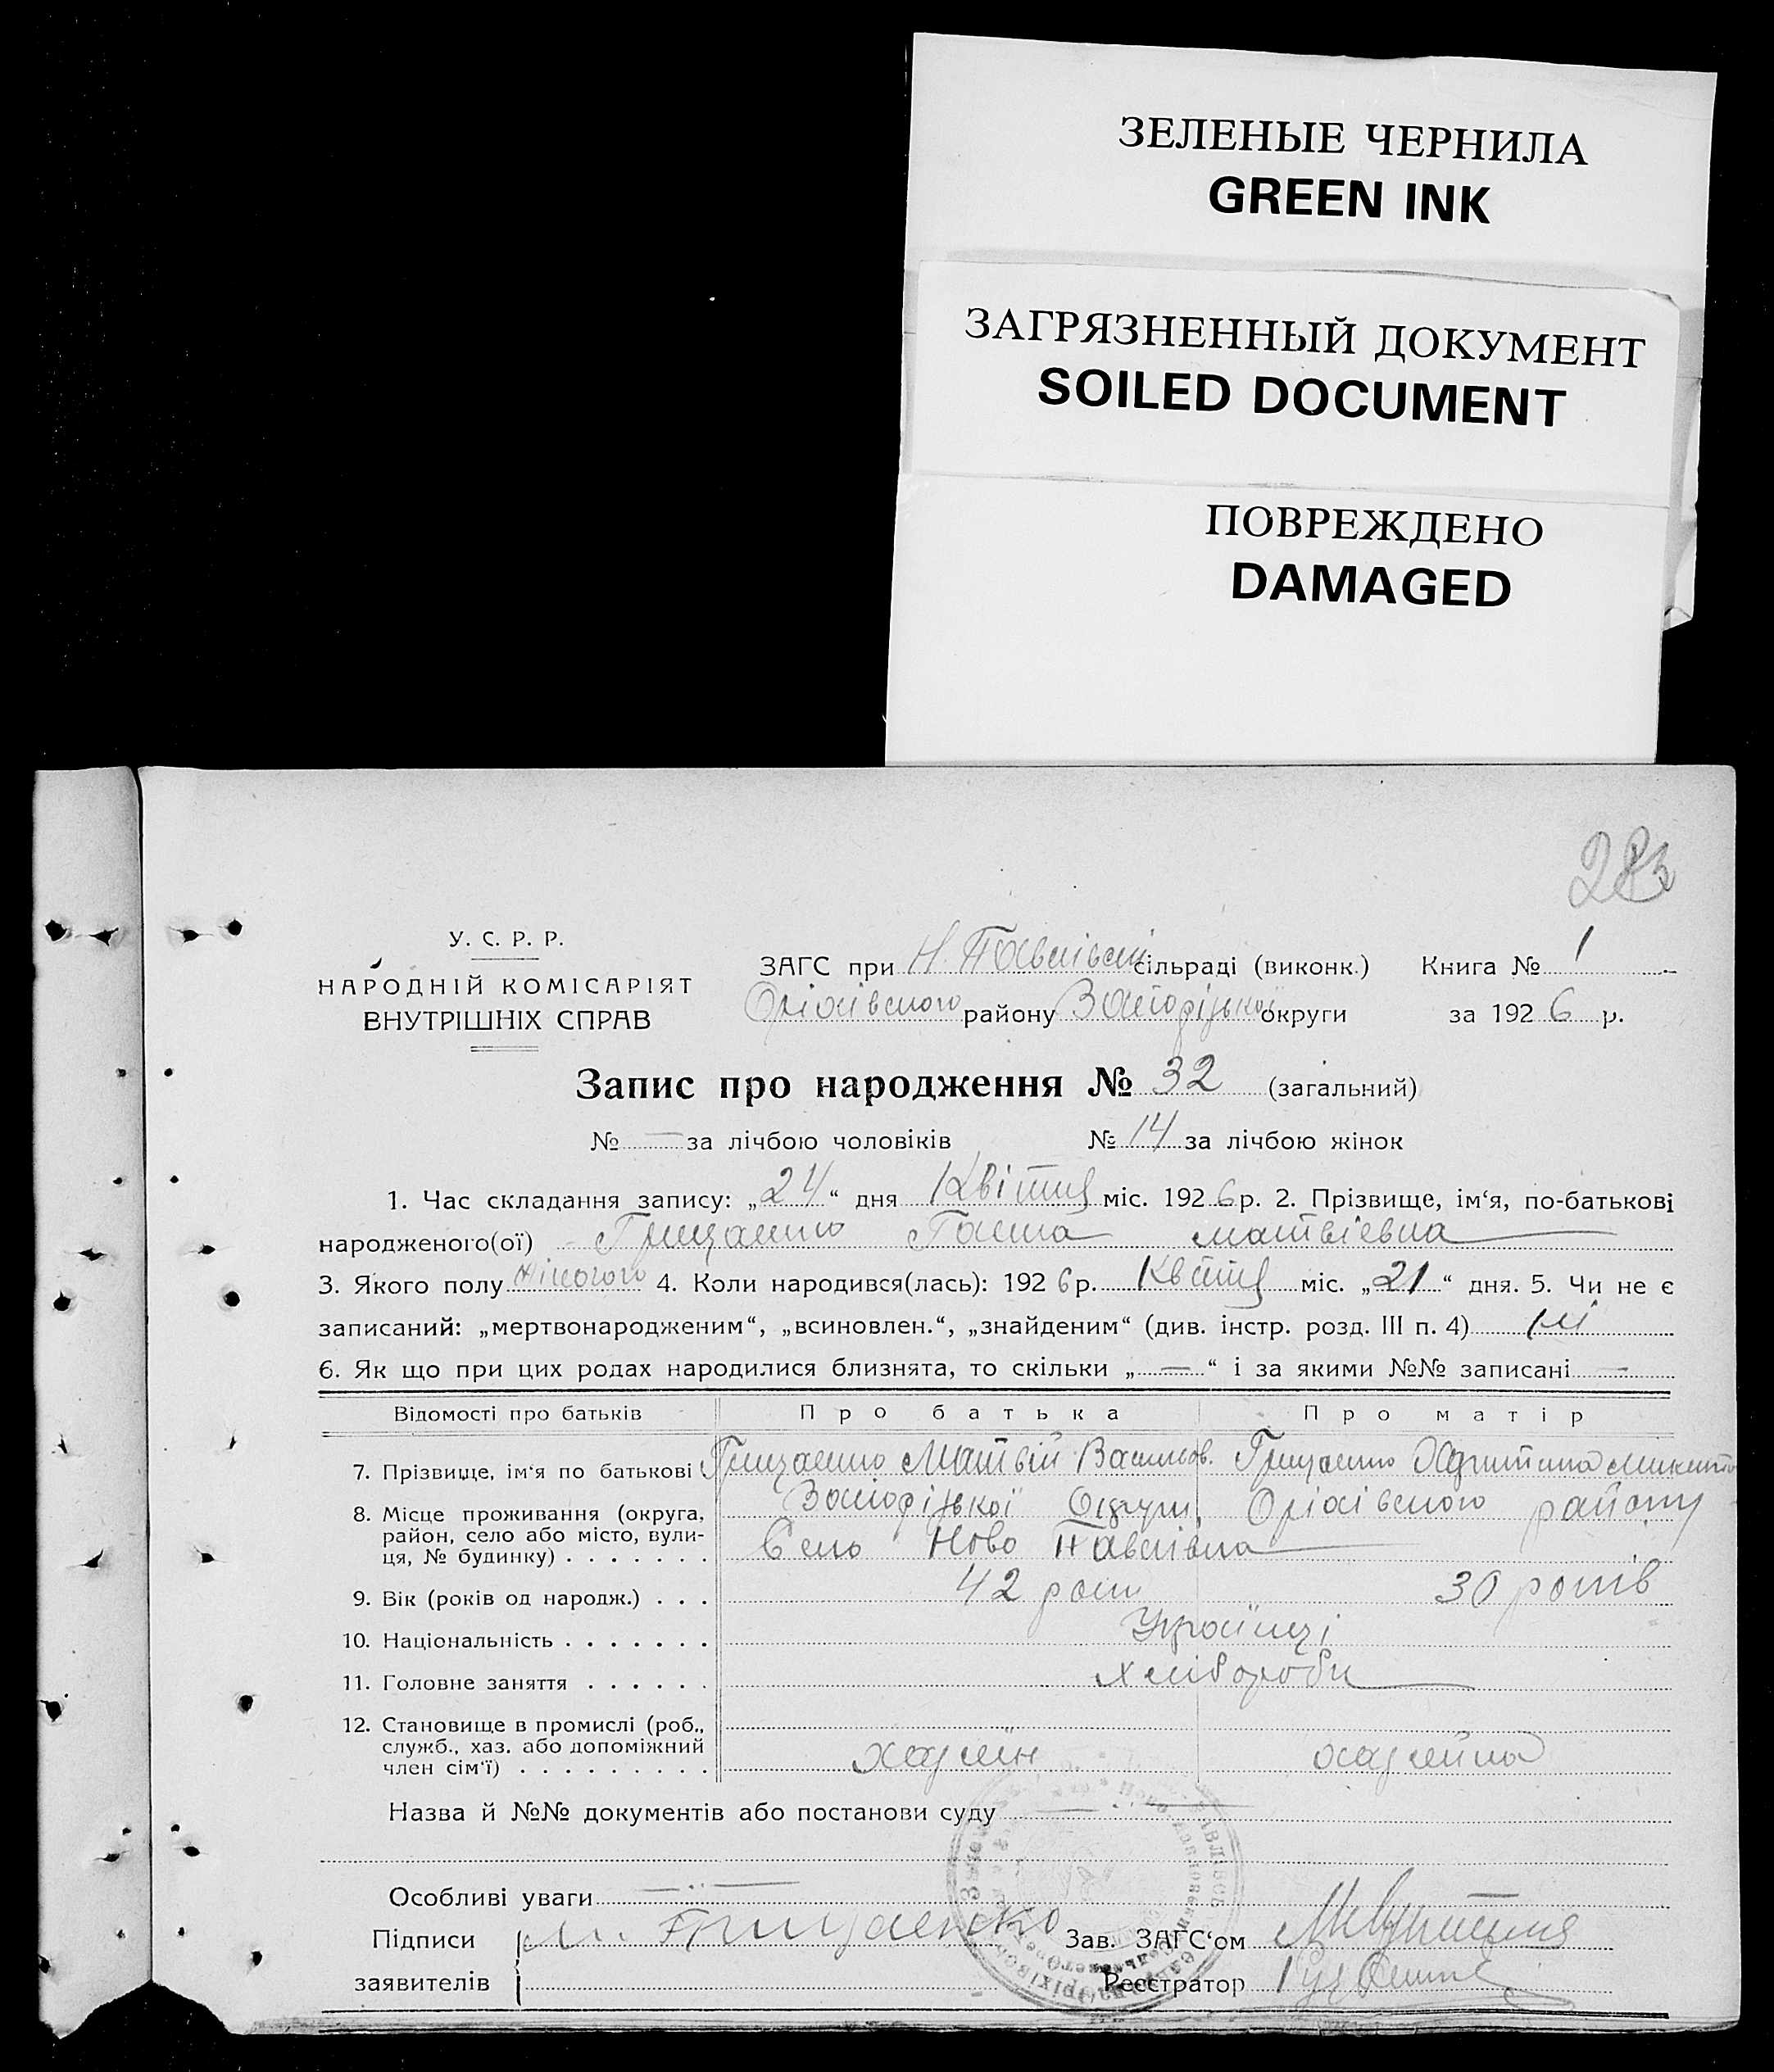 ЗЕЛЕНЫЕ ЧЕРНИЛА
GREEN INK
ЗАГРЯЗНЕННЫЙ ДОКУМЕНТ
SOILED DOCUMENT
ПОВРЕЖДЕНО
DAMAGED
У. С. Р. Р.
НАРОДНІЙ КОМІСАРІЯТ
ВНУТРІШНІХ СПРАВ
ЗАГС при Н. Павлівскі сільраді (виконк.) Книга № 1
Оріхівського району Запорізької округи за 1926 р.
Запис про народження № 32 (загальний)
№ — за лічбою чоловіків № 14 за лічбою жінок
1. Час складання запису: „24“ дня Квітня міс. 1926 р. 2. Прізвище, ім‘я, по-батькові
народженого(ої) Грищенко Ганна Матвієвна
3. Якого полу жіночого 4. Коли народився(лась): 1926 р. Квітня міс. „21“ дня. 5. Чи не є
записаний: „мертвонародженим“, „всиновлен.“, „знайденим“ (див. інстр. розд. III п. 4) ні
6. Як що при цих родах народилися близнята, то скільки „—“ і за якими №№ записані —
Відомості про батьків Про батька Про матір
7. Прізвище, ім‘я по батькові Грищенко Матвій Васильов. Грищенко
8. Місце проживання (округа, Запорізької Округи, Оріхівського району
район, село або місто, вули- Село Ново Павлівка
ця, № будинку)
9. Вік (років од народж.) 42 роки 30 років
10. Національність Українці
11. Головне заняття хлібороби
12. Становище в промислі (роб.,
служб., хаз. або допоміжний
член сім‘ї) хазяїн хазяйка
Назва й №№ документів або постанови суду —
Особливі уваги —
Підписи М. Грищенко Зав. ЗАГС‘ом
заявителів Реєстратор